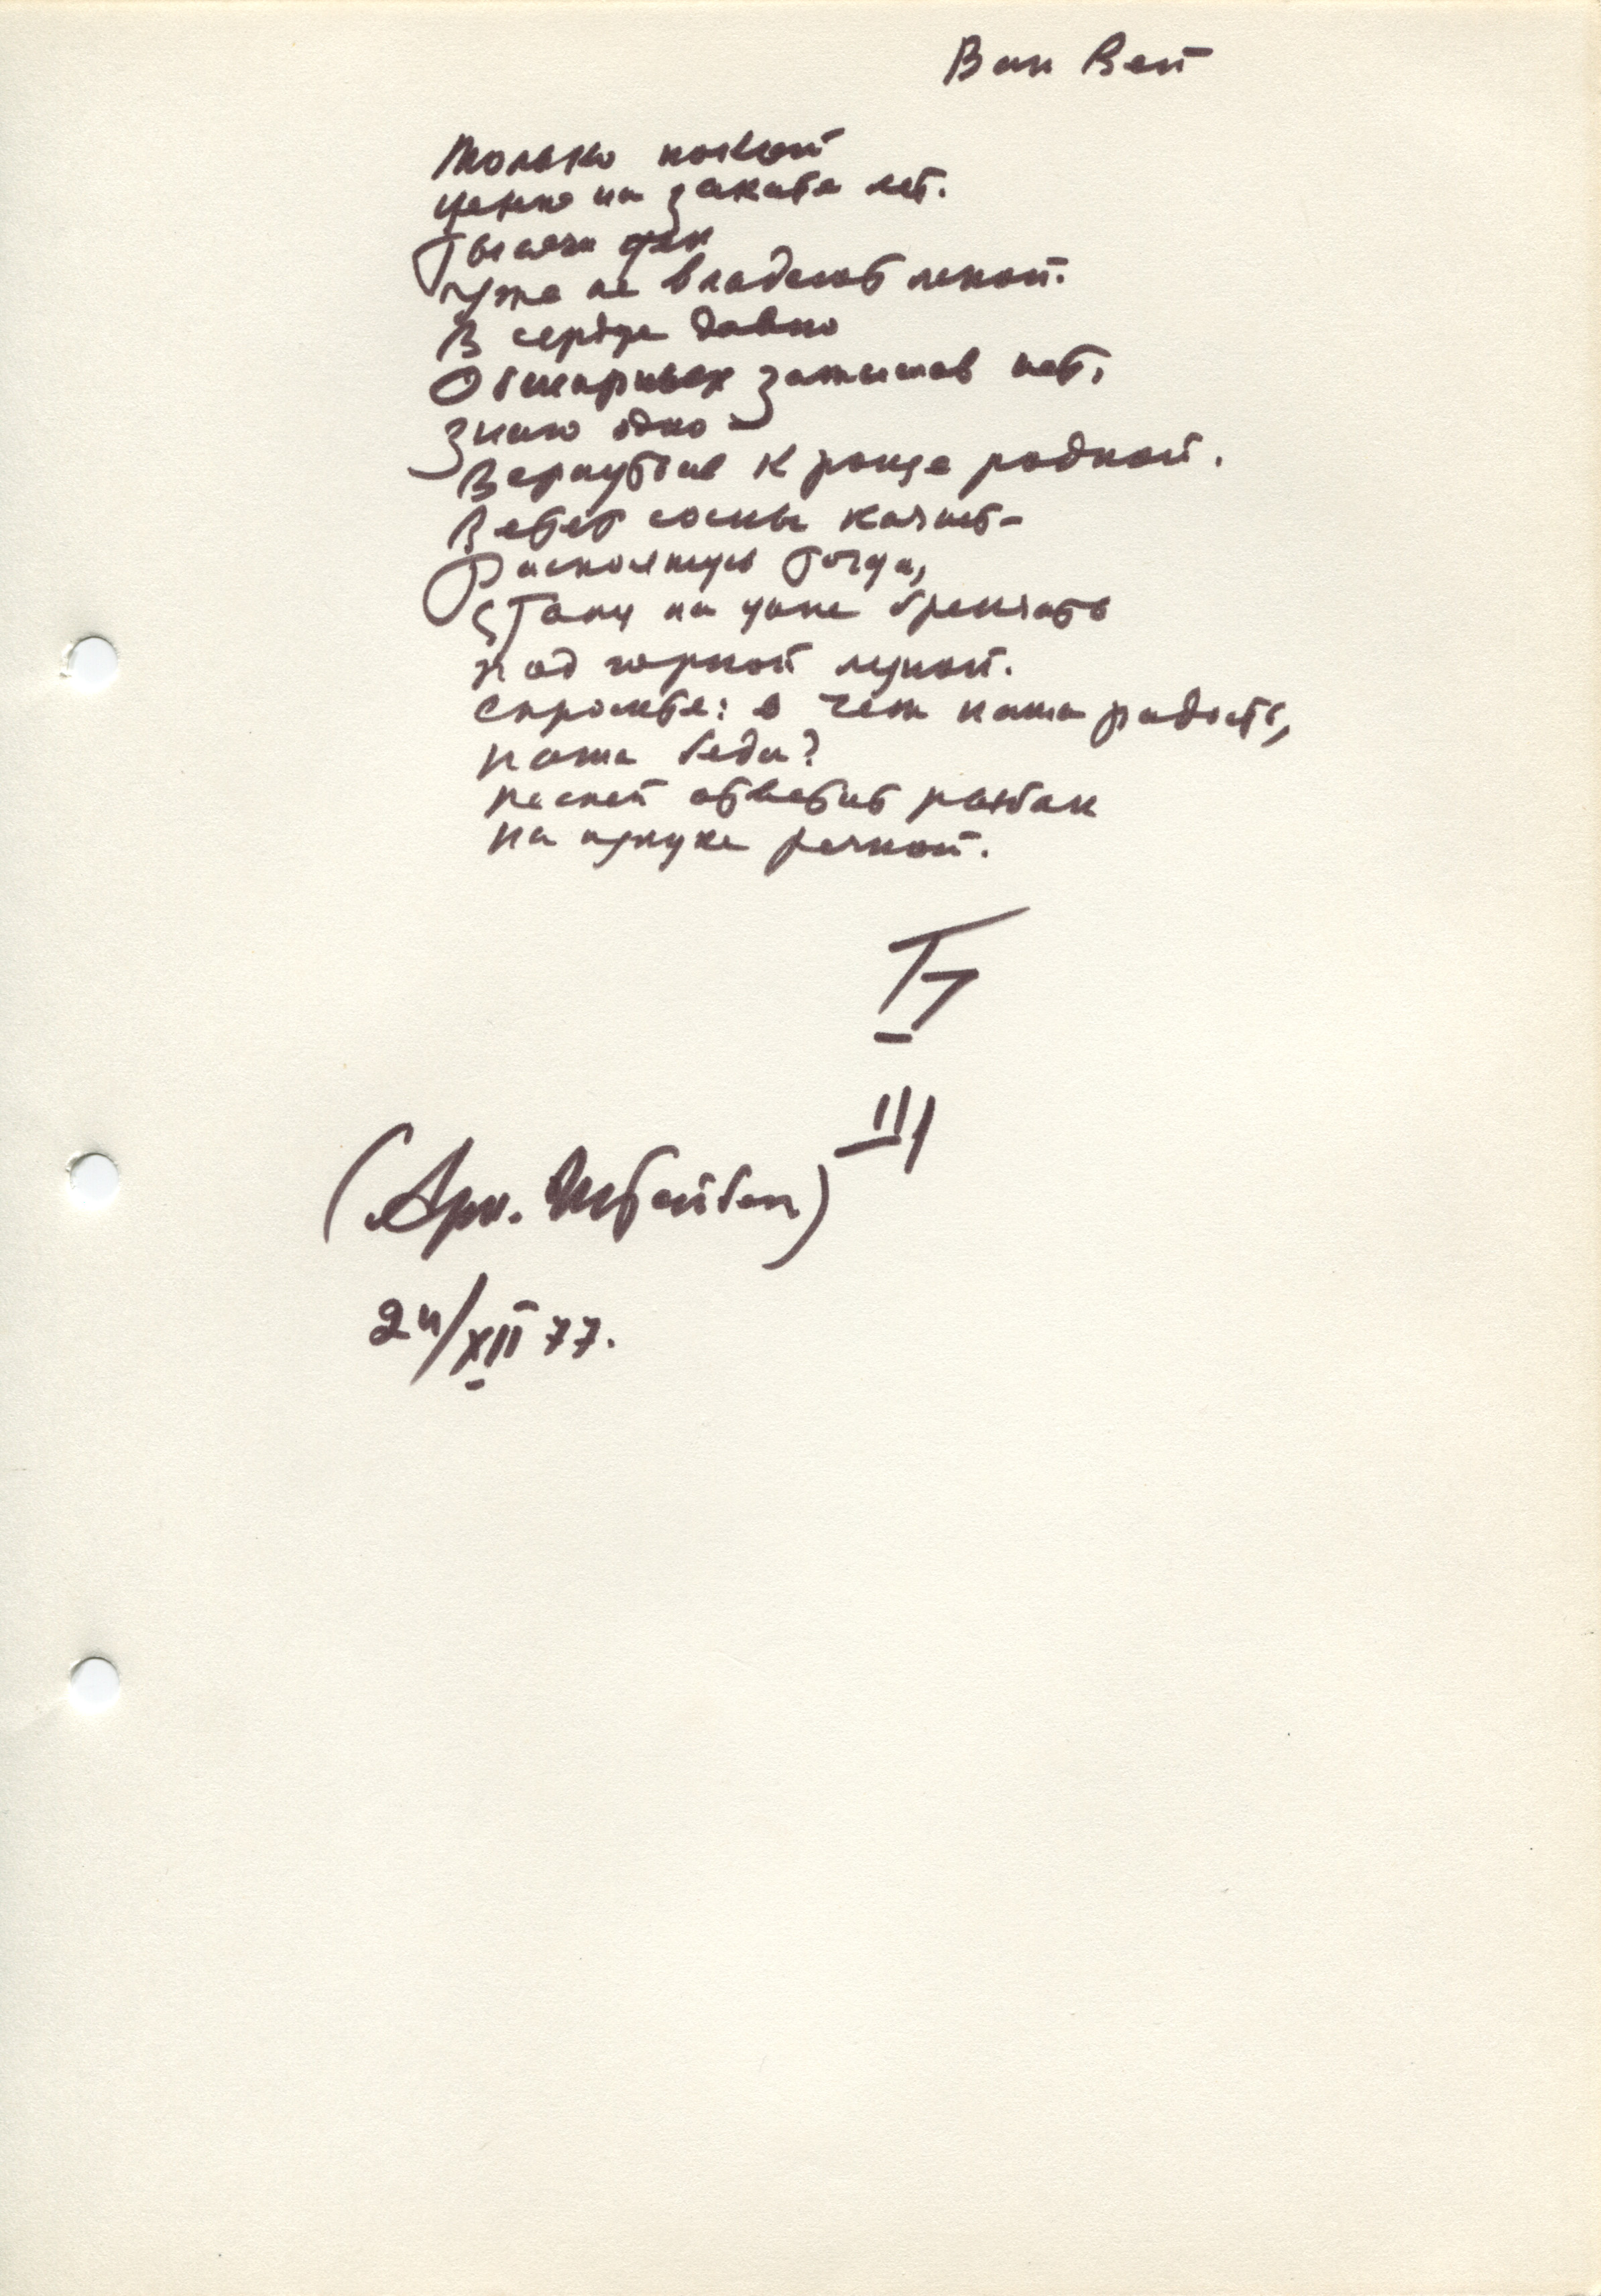 Ван Вей
Только покой
ценю на закате лет.
Тысячи дел
уже не владеют мной.
В сердце давно
Обширных замыслов нет,
Знаю одно —
Вернуться к роще родной.
Ветер сосны качает –
Распояшусь тогда,
Стану на цине бренчать
под горной луной.
спросите: в чем наша радость,
наша беда?
песней ответит рыбак
на излуке речной.
III
(Арк. Штейнберг)
24/XII 77.